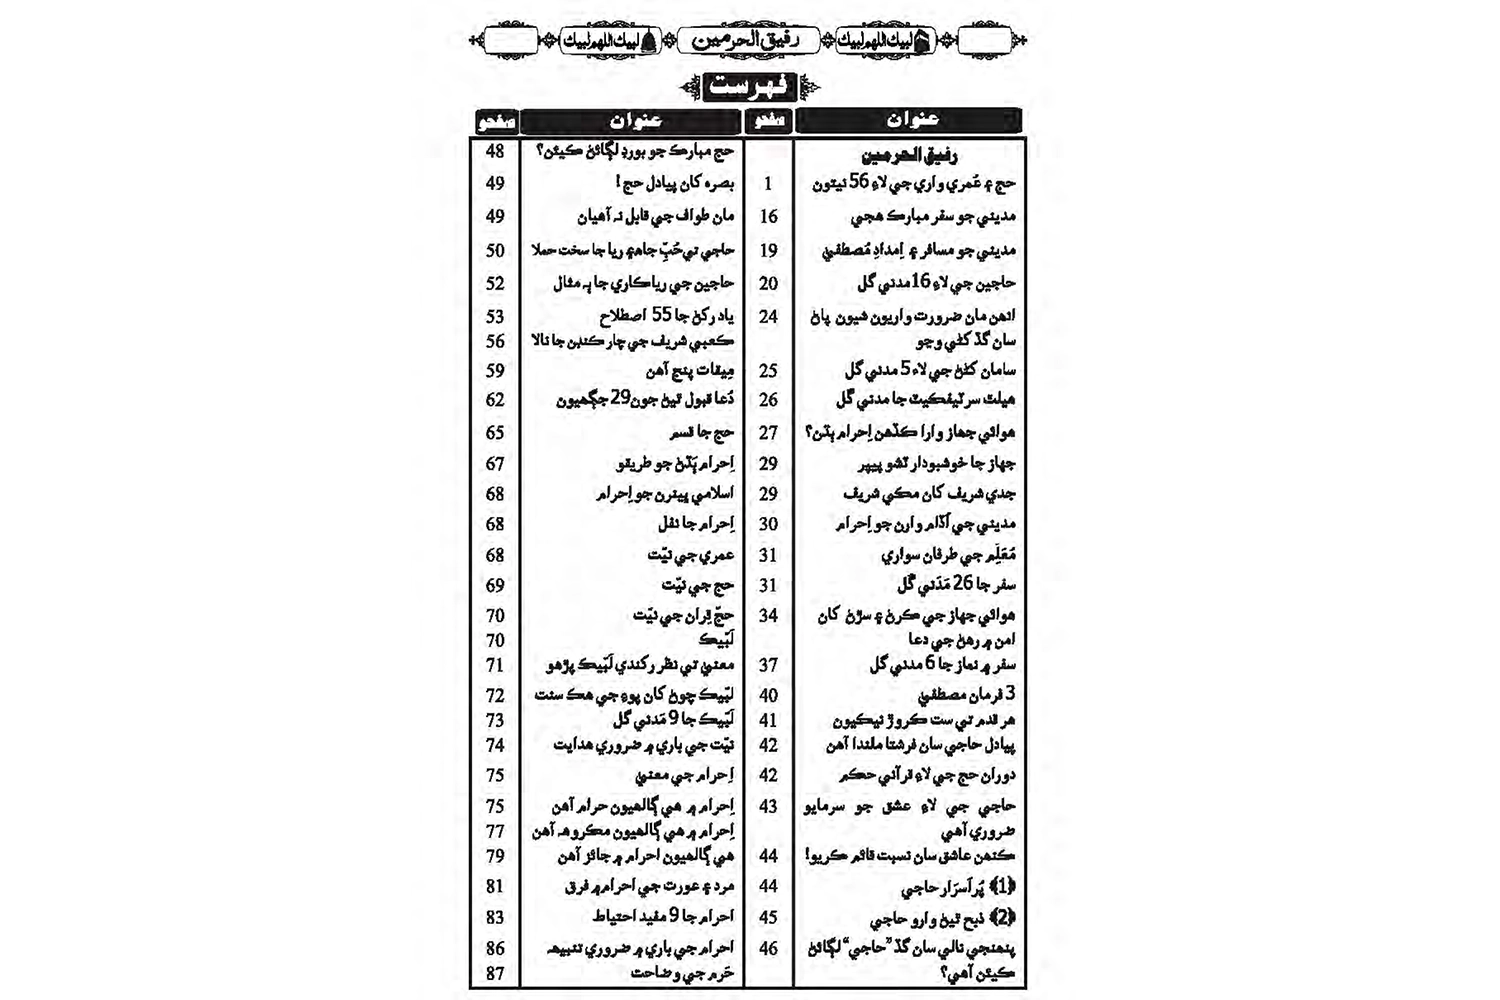 لبيك اللهم لبيك رفيق الحرمين لبيك اللهم لبيك
فهرست
عنوان صفحو عنوان صفحو
رفيق الحرمين
حج ۽ عُمري واري جي لاءِ 56 نيتون 1
مديني جو سفر مبارڪ هجي 16
مديني جو مسافر ۽ اِمدادِ مُصطفيٰ 19
حاجين جي لاءِ 16 مدني گل 20
انهن مان ضرورت واريون شيون پاڻ 24
سان گڏ کڻي وڃو
سامان کڻڻ جي لاءِ 5 مدني گل 25
هيلٿ سرٽيفڪيٽ جا مدني گل 26
هوائي جهاز وارا ڪڏهن اِحرام ٻڌن؟ 27
جهاز جا خوشبودار ٽشو پيپر 29
جدي شريف کان مڪي شريف 29
مديني جي اُڏام وارن جو اِحرام 30
مُعَلِّم جي طرفان سواري 31
سفر جا 26 مَدَني گُل 31
هوائي جهاز جي ڪرڻ ۽ سڙڻ کان 34
امن ۾ رهڻ جي دعا
سفر ۾ نماز جا 6 مدني گل 37
3 فرمان مصطفيٰ 40
هر قدم تي ست ڪروڙ نيڪيون 41
پيادل حاجي سان فرشتا ملندا آهن 42
دوران حج جي لاءِ قرآني حڪم 42
حاجي جي لاءِ عشق جو سرمايو 43
ضروري آهي
ڪنهن عاشق سان نسبت قائم ڪريو! 44
﴿1﴾ پُراَسرَار حاجي 44
﴿2﴾ ذبح ٿيڻ وارو حاجي 45
پنهنجي نالي سان گڏ ”حاجي“ لڳائڻ 46
ڪيئن آهي؟
حج مبارڪ جو بورڊ لڳائڻ ڪيئن؟ 48
بصره کان پيادل حج! 49
مان طواف جي قابل نہ آهيان 49
حاجي تي حُبِّ جاهه ۽ ريا جا سخت حملا 50
حاجين جي رياڪاري جا ٻہ مثال 52
ياد رکڻ جا 55 اصطلاح 53
ڪعبي شريف جي چار ڪنڊن جا نالا 56
مِيقات پنج آهن 59
دُعا قبول ٿيڻ جون 29 جڳهيون 62
حج جا قسم 65
اِحرام ٻَڌڻ جو طريقو 67
اسلامي ڀينرن جو اِحرام 68
اِحرام جا نفل 68
عمري جي نيّت 68
حج جي نيّت 69
حجِّ قِران جي نيّت 70
لَبّيڪ 70
معنيٰ تي نظر رکندي لَبّيڪ پڙهو 71
لبّيڪ چوڻ کان پوءِ جي هڪ سنت 72
لَبّيڪ جا 9 مَدَني گل 73
نيّت جي باري ۾ ضروري هدايت 74
اِحرام جي معنيٰ 75
اِحرام ۾ هي ڳالهيون حرام آهن 75
اِحرام ۾ هي ڳالهيون مڪروهه آهن 77
هي ڳالهيون احرام ۾ جائز آهن 79
مرد ۽ عورت جي احرام ۾ فرق 81
احرام جا 9 مفيد احتياط 83
احرام جي باري ۾ ضروري تنبيهه 86
حَرم جي وضاحت 87